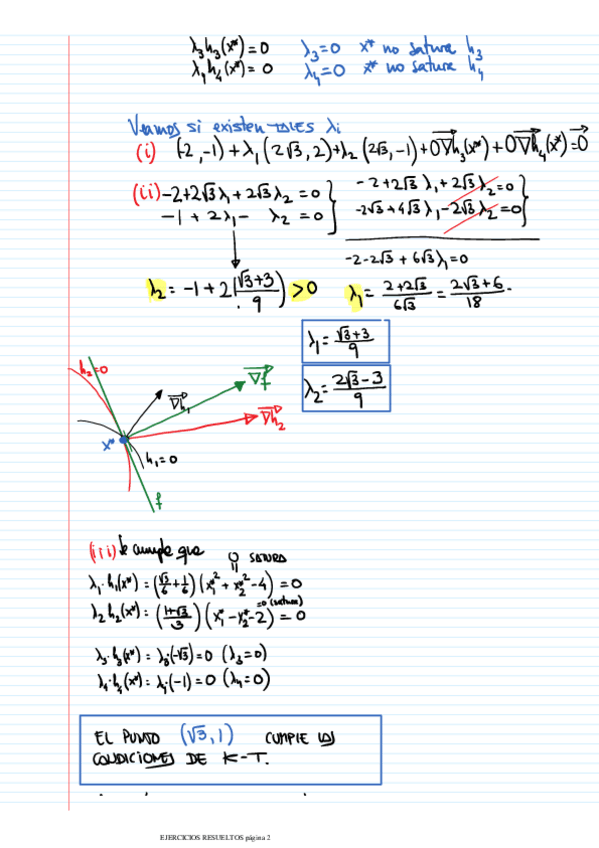 λ₃h₃(x*) = 0   λ₃=0  x* no satura h₃
λ₁h₄(x*) = 0   λ₄=0  x* no satura h₄
Veamos si existen TALES λi
(i) (-2,-1) + λ₁(2√3, 2) + λ₂(2√3, -1) + 0∇h₃(x*) + 0∇h₄(x*) = 0
(ii) -2+2√3λ₁+2√3λ₂ = 0
-1 + 2λ₁ - λ₂ = 0
-2+2√3λ₁+2√3λ₂=0
-2√3+4√3λ₁-2√3λ₂=0
-2-2√3 + 6√3λ₁=0
λ₂ = -1 + 2(√3+3/9) > 0   λ₁ = 2+2√3/6√3 = 2√3+6/18.
λ₁ = √3+3/9
λ₂ = 2√3-3/9
h₂=0
∇f
∇h₁
∇h₂
x*
h₁=0
f
(iii) Se cumple que
SATURA
λ₁·h₁(x*) = (√3/6 + 1/6)(x₁*² + x₂*² - 4) = 0
=0 (satura)
λ₂h₂(x*) = (1+√3/3)(x₁* - x₂* - 2) = 0
λ₃·h₃(x*) = λ₃·(-√3) = 0 (λ₃=0)
λ₄·h₄(x*) = λ₄(-1) = 0 (λ₄=0)
EL PUNTO (√3, 1) CUMPLE LAS
CONDICIONES DE K-T.
EJERCICIOS RESUELTOS página 2